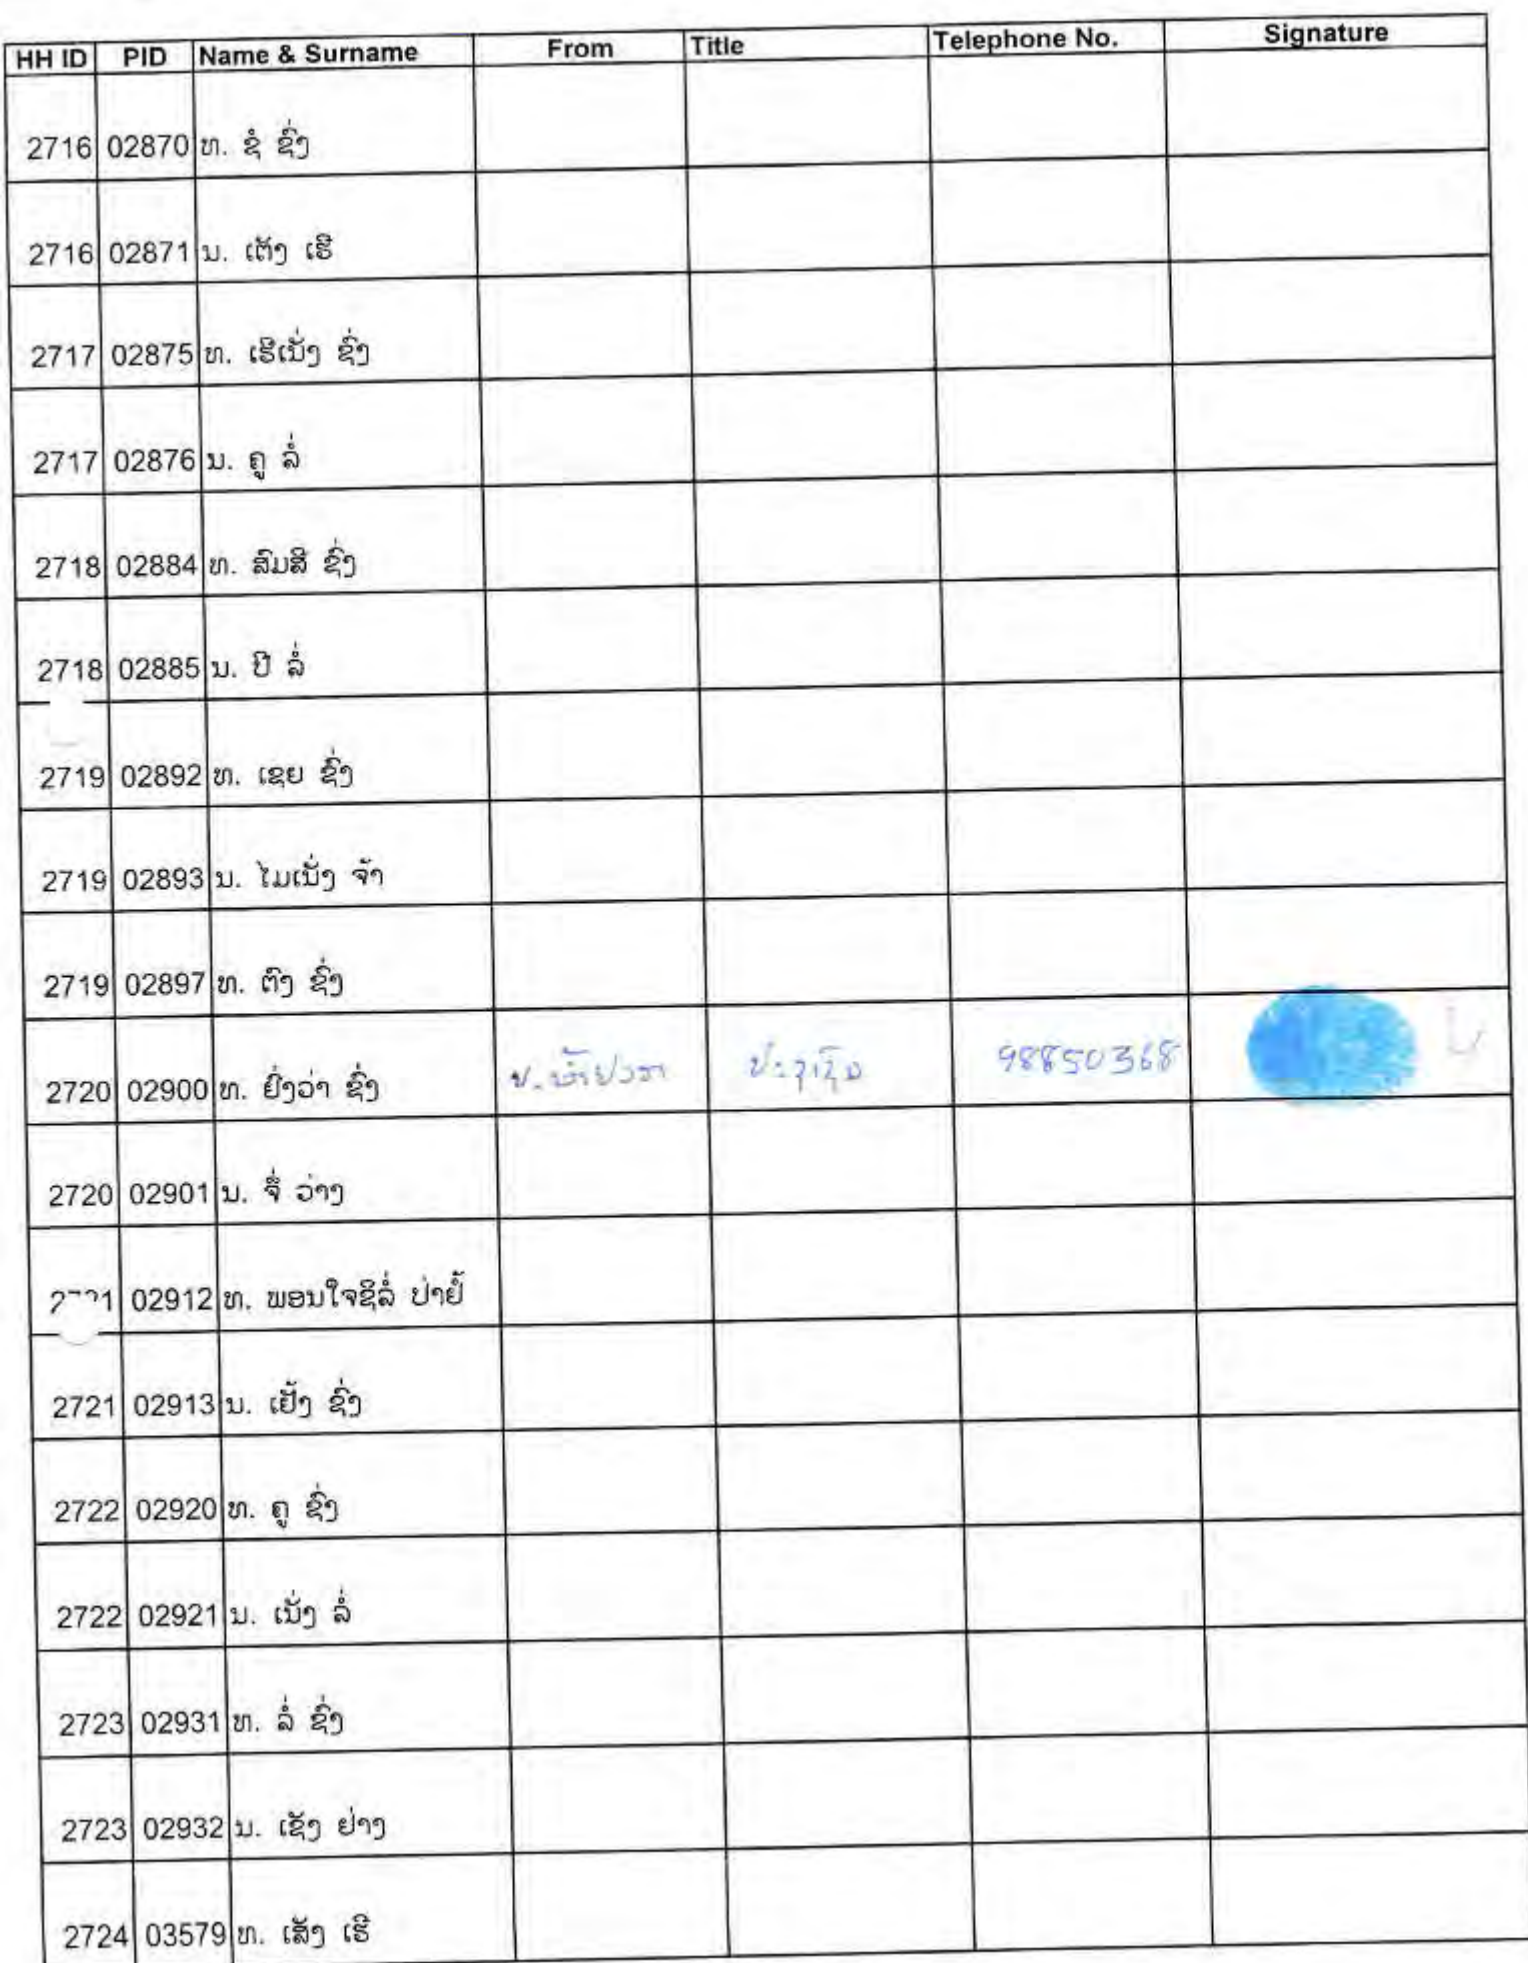 HH ID PID Name & Surname From Title Telephone No. Signature
2716 02870 ທ. ຊໍ ຊົ່ງ
2716 02871 ນ. ເຕັງ ເຮີ
2717 02875 ທ. ເຮີເນັ່ງ ຊົ່ງ
2717 02876 ນ. ຄູ ລໍ່
2718 02884 ທ. ສົມສີ ຊົ່ງ
2718 02885 ນ. ປີ ລໍ່
2719 02892 ທ. ເຊຍ ຊົ່ງ
2719 02893 ນ. ໄມເນັ່ງ ຈ້າ
2719 02897 ທ. ຕົງ ຊົ່ງ
2720 02900 ທ. ຢົ່ງວ່າ ຊົ່ງ 98850368
2720 02901 ນ. ຈື່ ວ່າງ
02912 ທ. ພອນໃຈຊີລໍ່ ປ່າຢໍ້
2721 02913 ນ. ເຢັ້ງ ຊົ່ງ
2722 02920 ທ. ຄູ ຊົ່ງ
2722 02921 ນ. ເນັ່ງ ລໍ່
2723 02931 ທ. ລໍ່ ຊົ່ງ
2723 02932 ນ. ເຊັງ ຢ່າງ
2724 03579 ທ. ເສັງ ເຮີ